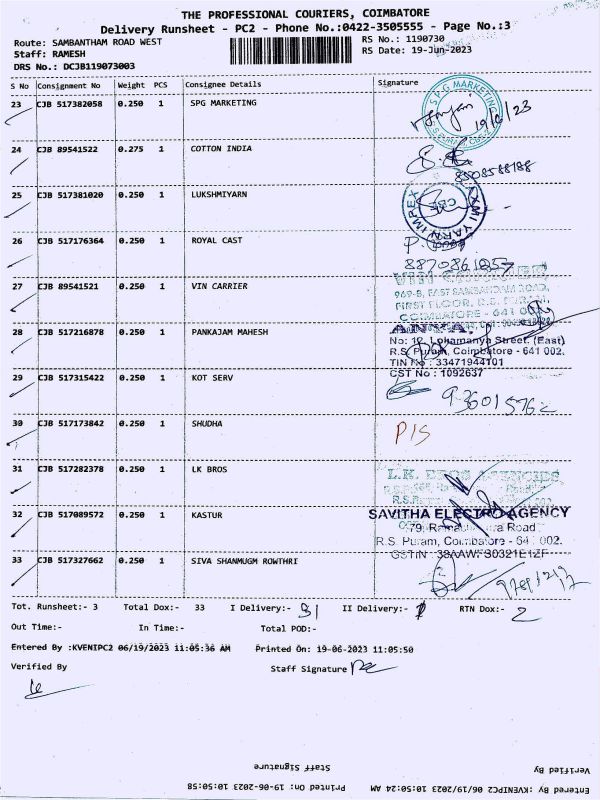 THE PROFESSIONAL COURIERS, COIMBATORE
Delivery Runsheet - PC2 - Phone No.:0422-3505555 - Page No.:3
Route: SAMBANTHAM ROAD WEST RS No.: 1190730
Staff: RAMESH RS Date: 19-Jun-2023
DRS No.: DCJB119073003
S No Consignment No Weight PCS Consignee Details Signature
23 CJB 517382058 0.250 1 SPG MARKETING
SPG MARKETING
19/6/23
24 CJB 89541522 0.275 1 COTTON INDIA
8508588188
25 CJB 517381020 0.250 1 LUKSHMIYARN
26 CJB 517176364 0.250 1 ROYAL CAST
8870861057
27 CJB 89541521 0.250 1 VIN CARRIER
969-B, EAST SAMBANDAM ROAD,
FIRST FLOOR, R.S. PURAM,
COIMBATORE - 641 002
28 CJB 517216878 0.250 1 PANKAJAM MAHESH
No: 12, Lokamanya Street. (East)
R.S. Puram, Coimbatore - 641 002.
TIN No : 33471944101
CST No : 1092637
29 CJB 517315422 0.250 1 KOT SERV
30 CJB 517173842 0.250 1 SHUDHA
P/S
31 CJB 517282378 0.250 1 LK BROS
L.K. BROS AGENCIES
32 CJB 517089572 0.250 1 KASTUR
SAVITHA ELECTRO AGENCY
R.S. Puram, Coimbatore - 641 002.
33 CJB 517327662 0.250 1 SIVA SHANMUGM ROWTHRI
Tot. Runsheet:- 3 Total Dox:- 33 I Delivery:- 31 II Delivery:- RTN Dox:- 2
Out Time:- In Time:- Total POD:-
Entered By :KVENIPC2 06/19/2023 11:05:36 AM Printed On: 19-06-2023 11:05:50
Verified By Staff Signature
Staff Signature Verified By
Entered By :KVENIPC2 06/19/2023 10:50:24 AM Printed On: 19-06-2023 10:50:58